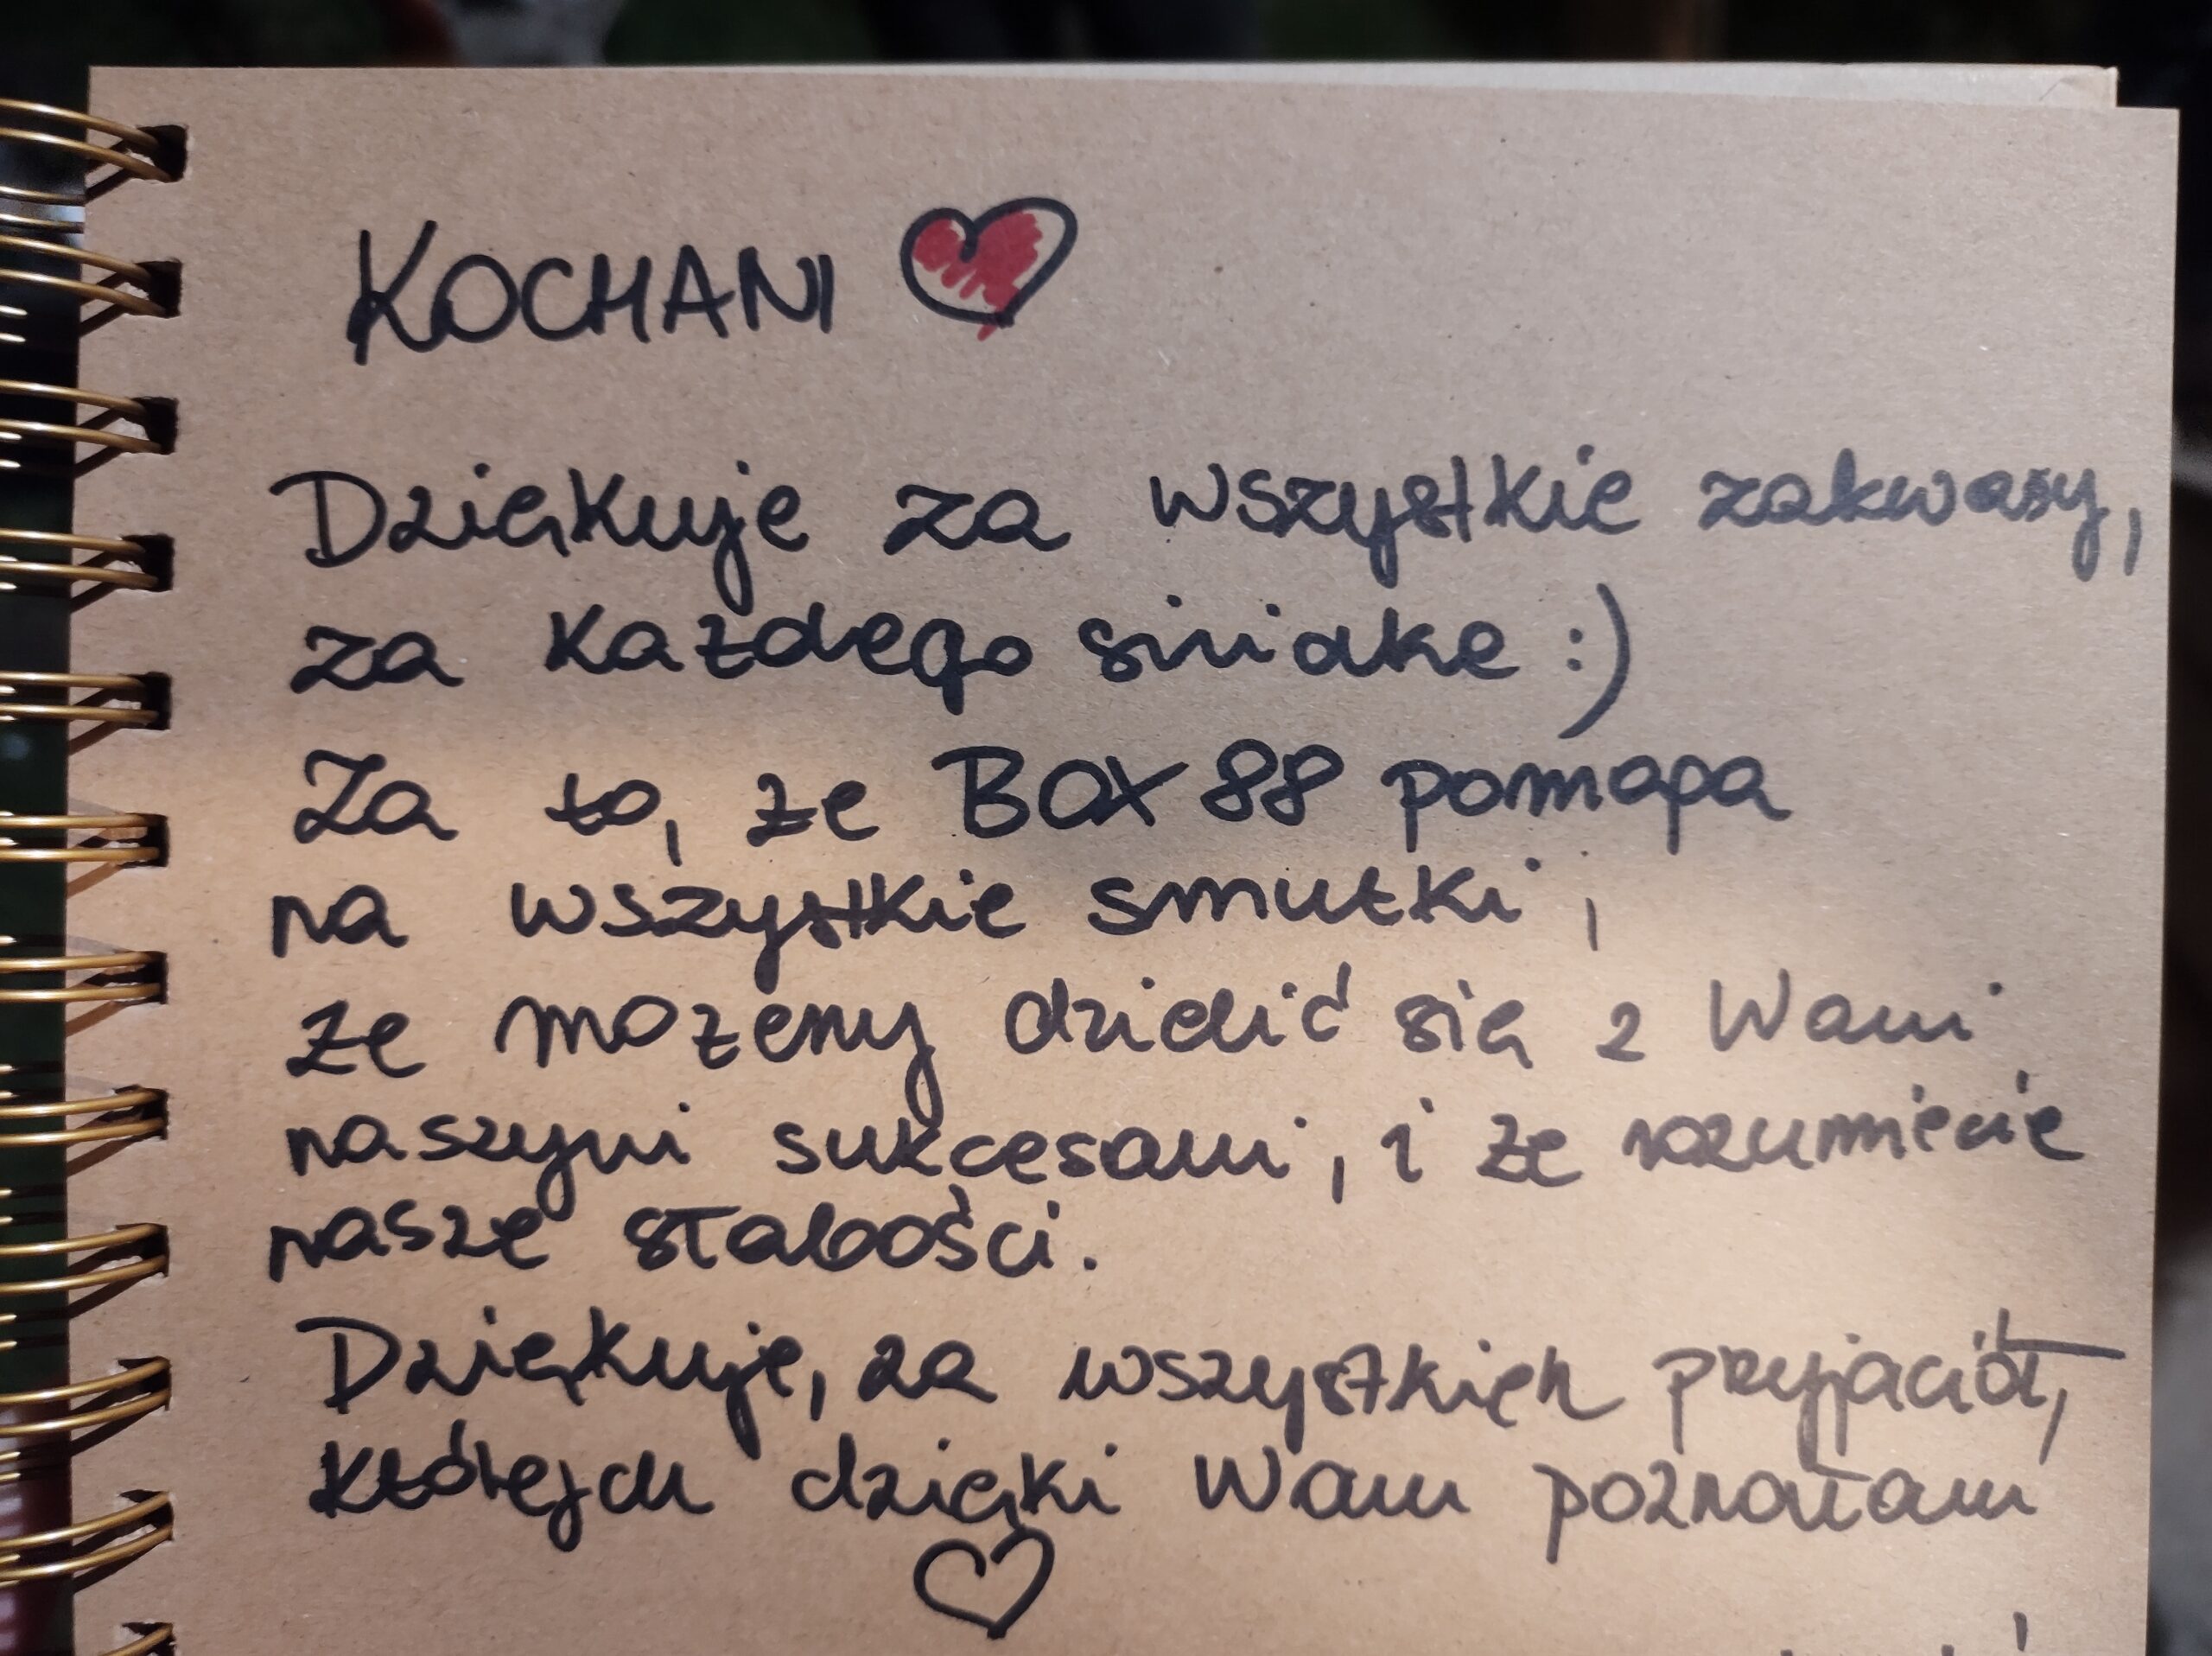 KOCHANI
Dziękuję za wszystkie zakwasy,
za każdego siniaka :)
Za to, że BOX 88 pomaga
na wszystkie smutki,
że możemy dzielić się z Wami
naszymi sukcesami, i że rozumiecie
nasze słabości.
Dziękuję, za wszystkich przyjaciół,
których dzięki Wam poznałam